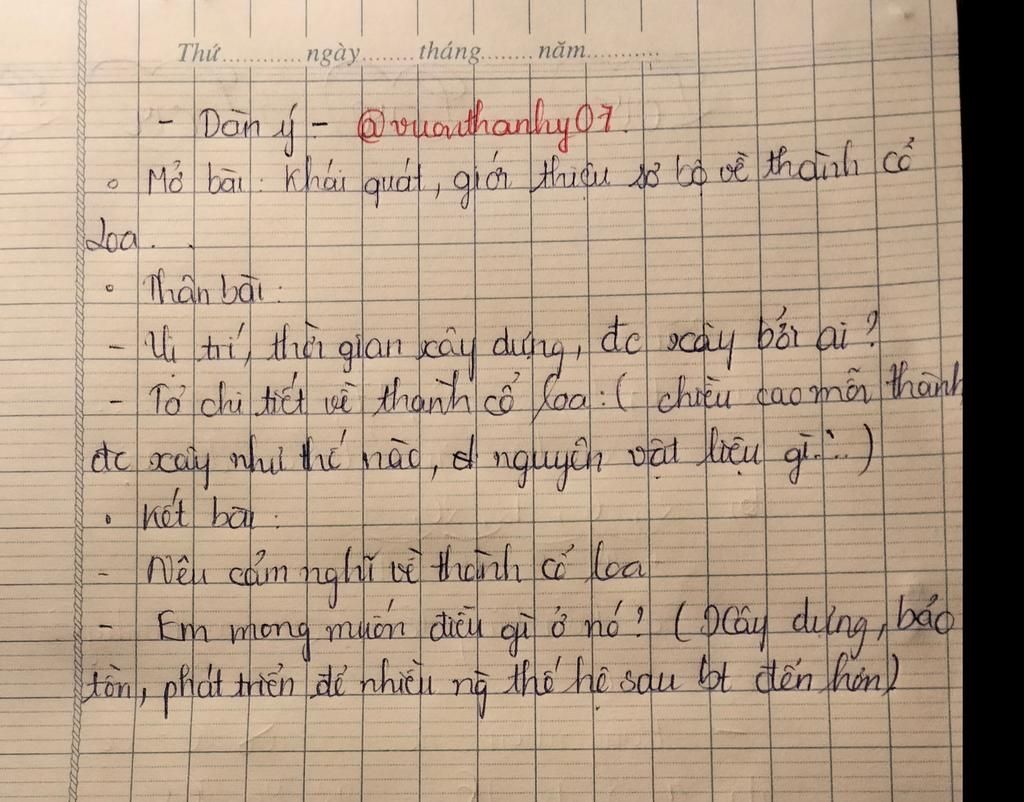 Thứ............ngày........tháng........năm...........
- Dàn ý - @vuonthanhy07.
∘ Mở bài: Khái quát, giới thiệu sơ bộ về thành cổ
Loa...
∘ Thân bài:
- Vị trí, thời gian xây dựng, đc xây bởi ai?
- Tả chi tiết về thành cổ loa: ( chiều cao mỗi thành
đc xây như thế nào, nguyên vật liệu gì...)
∘ Kết bài:
- Nêu cảm nghĩ về thành cổ loa
- Em mong muốn điều gì ở nó? ( Xây dựng, bảo
tồn, phát triển để nhiều ng thế hệ sau bt đến hơn)